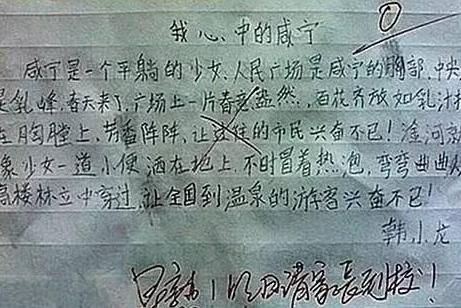 0
我心中的咸宁
咸宁是一个平躺的少女,人民广场是咸宁的胸部,中央
是乳峰,春天来了,广场上一片春意盎然,百花齐放如乳汁
在胸膛上,芳香阵阵,让过往的市民兴奋不已!淦河就
象少女一道小便洒在地上,不时冒着热泡,弯弯曲曲
高楼林立中穿过,让全国到温泉的游客兴奋不已!
韩小龙
明日请家长到校!